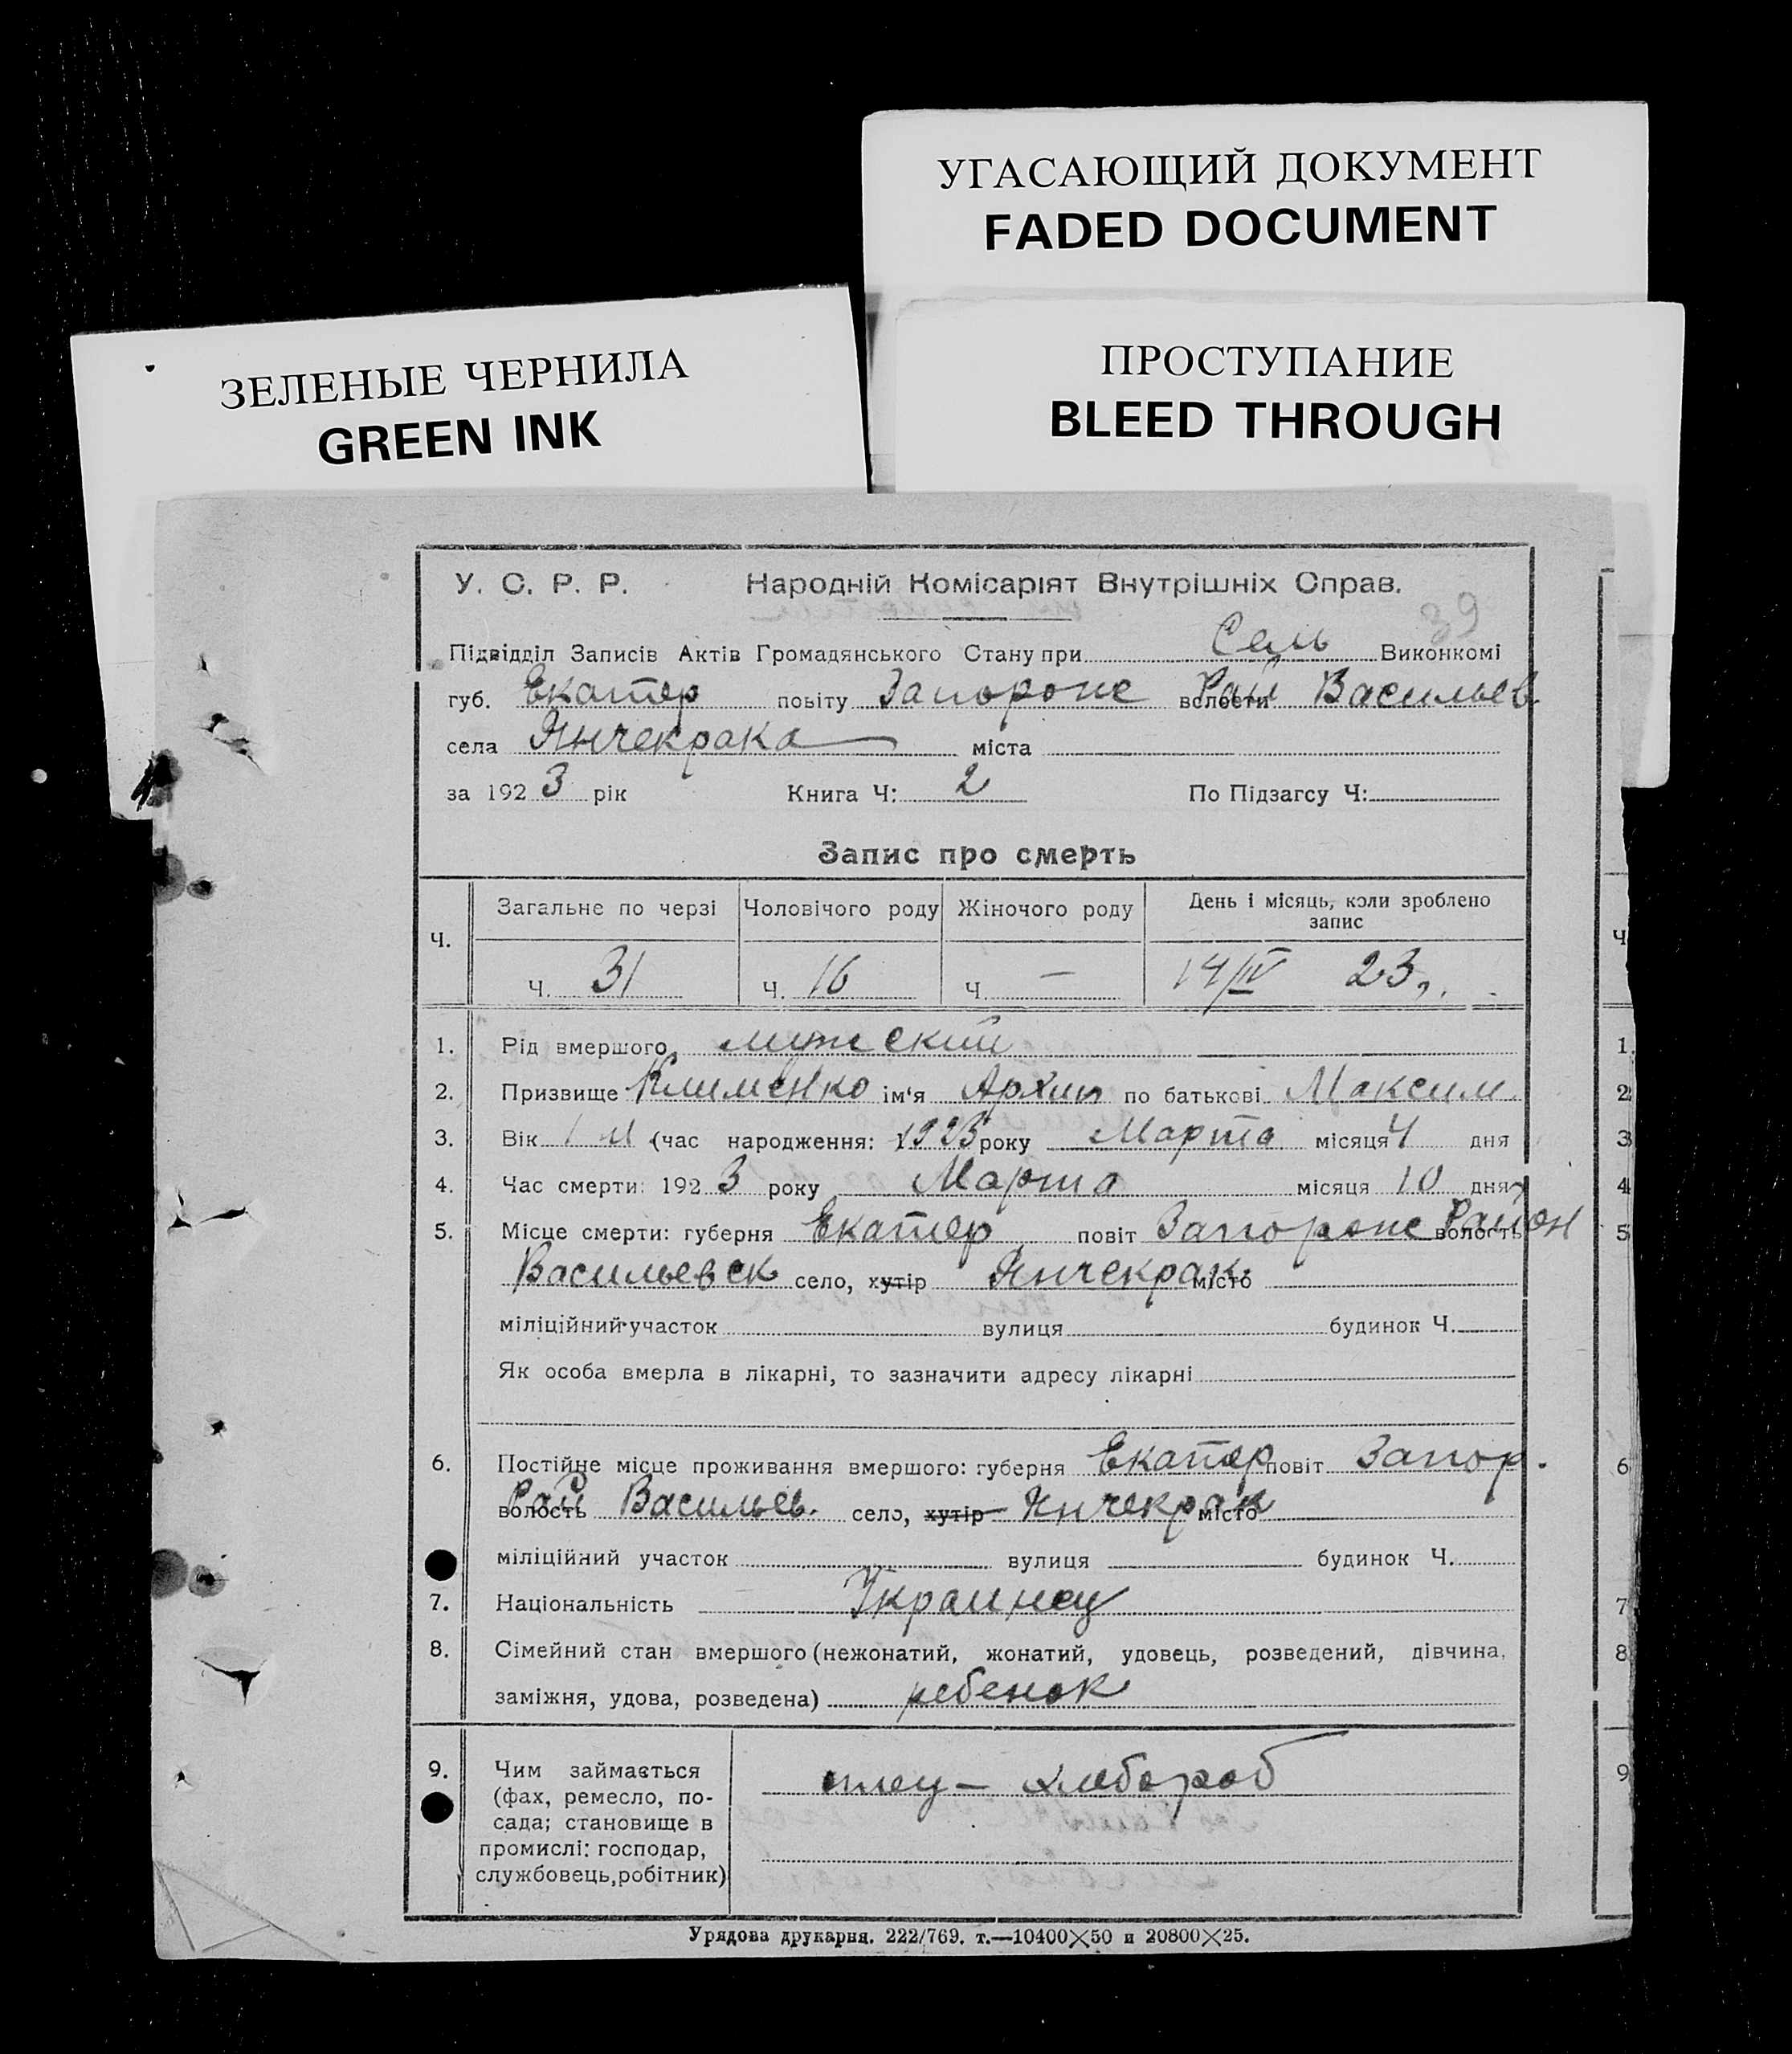 УГАСАЮЩИЙ ДОКУМЕНТ
FADED DOCUMENT
ЗЕЛЕНЫЕ ЧЕРНИЛА
GREEN INK
ПРОСТУПАНИЕ
BLEED THROUGH
39
У. С. Р. Р. Народній Комісаріят Внутрішніх Справ.
Підвідділ Записів Актів Громадянського Стану при Сель Виконкомі
губ. Екатер повіту Запорож волости Рай Васильев
села Янчекрака міста
за 1923 рік Книга Ч: 2 По Підзагсу Ч:
Запис про смерть
Ч. Загальне по черзі Чоловічого роду Жіночого роду День і місяць, коли зроблено запис
Ч. 31 Ч. 16 Ч. — 14/IV 23,.
1. Рід вмершого мужеский
2. Призвище Клименко ім'я Архип по батькові Максим.
3. Вік 1 м (час народження: 1923 року Марта місяця 4 дня
4. Час смерти: 1923 року Марта місяця 10 дня
5. Місце смерти: губерня Екатер повіт Запорож волость Район
Васильевск село, хутір Янчекрак місто
міліційний участок вулиця будинок Ч.
Як особа вмерла в лікарні, то зазначити адресу лікарні
6. Постійне місце проживання вмершого: губерня Екатер повіт Запор.
волость Рай Васильев. село, хутір Янчекрак місто
міліційний участок вулиця будинок Ч.
7. Національність Украинец
8. Сімейний стан вмершого (нежонатий, жонатий, удовець, розведений, дівчина,
заміжня, удова, розведена) ребенок
9. Чим займається отец — хлебороб
(фах, ремесло, по-
сада; становище в
промислі: господар,
службовець, робітник)
Урядова друкарня. 222/769. т.—10400×50 и 20800×25.
Ч
1.
2
3
4
5
6
7
8
9